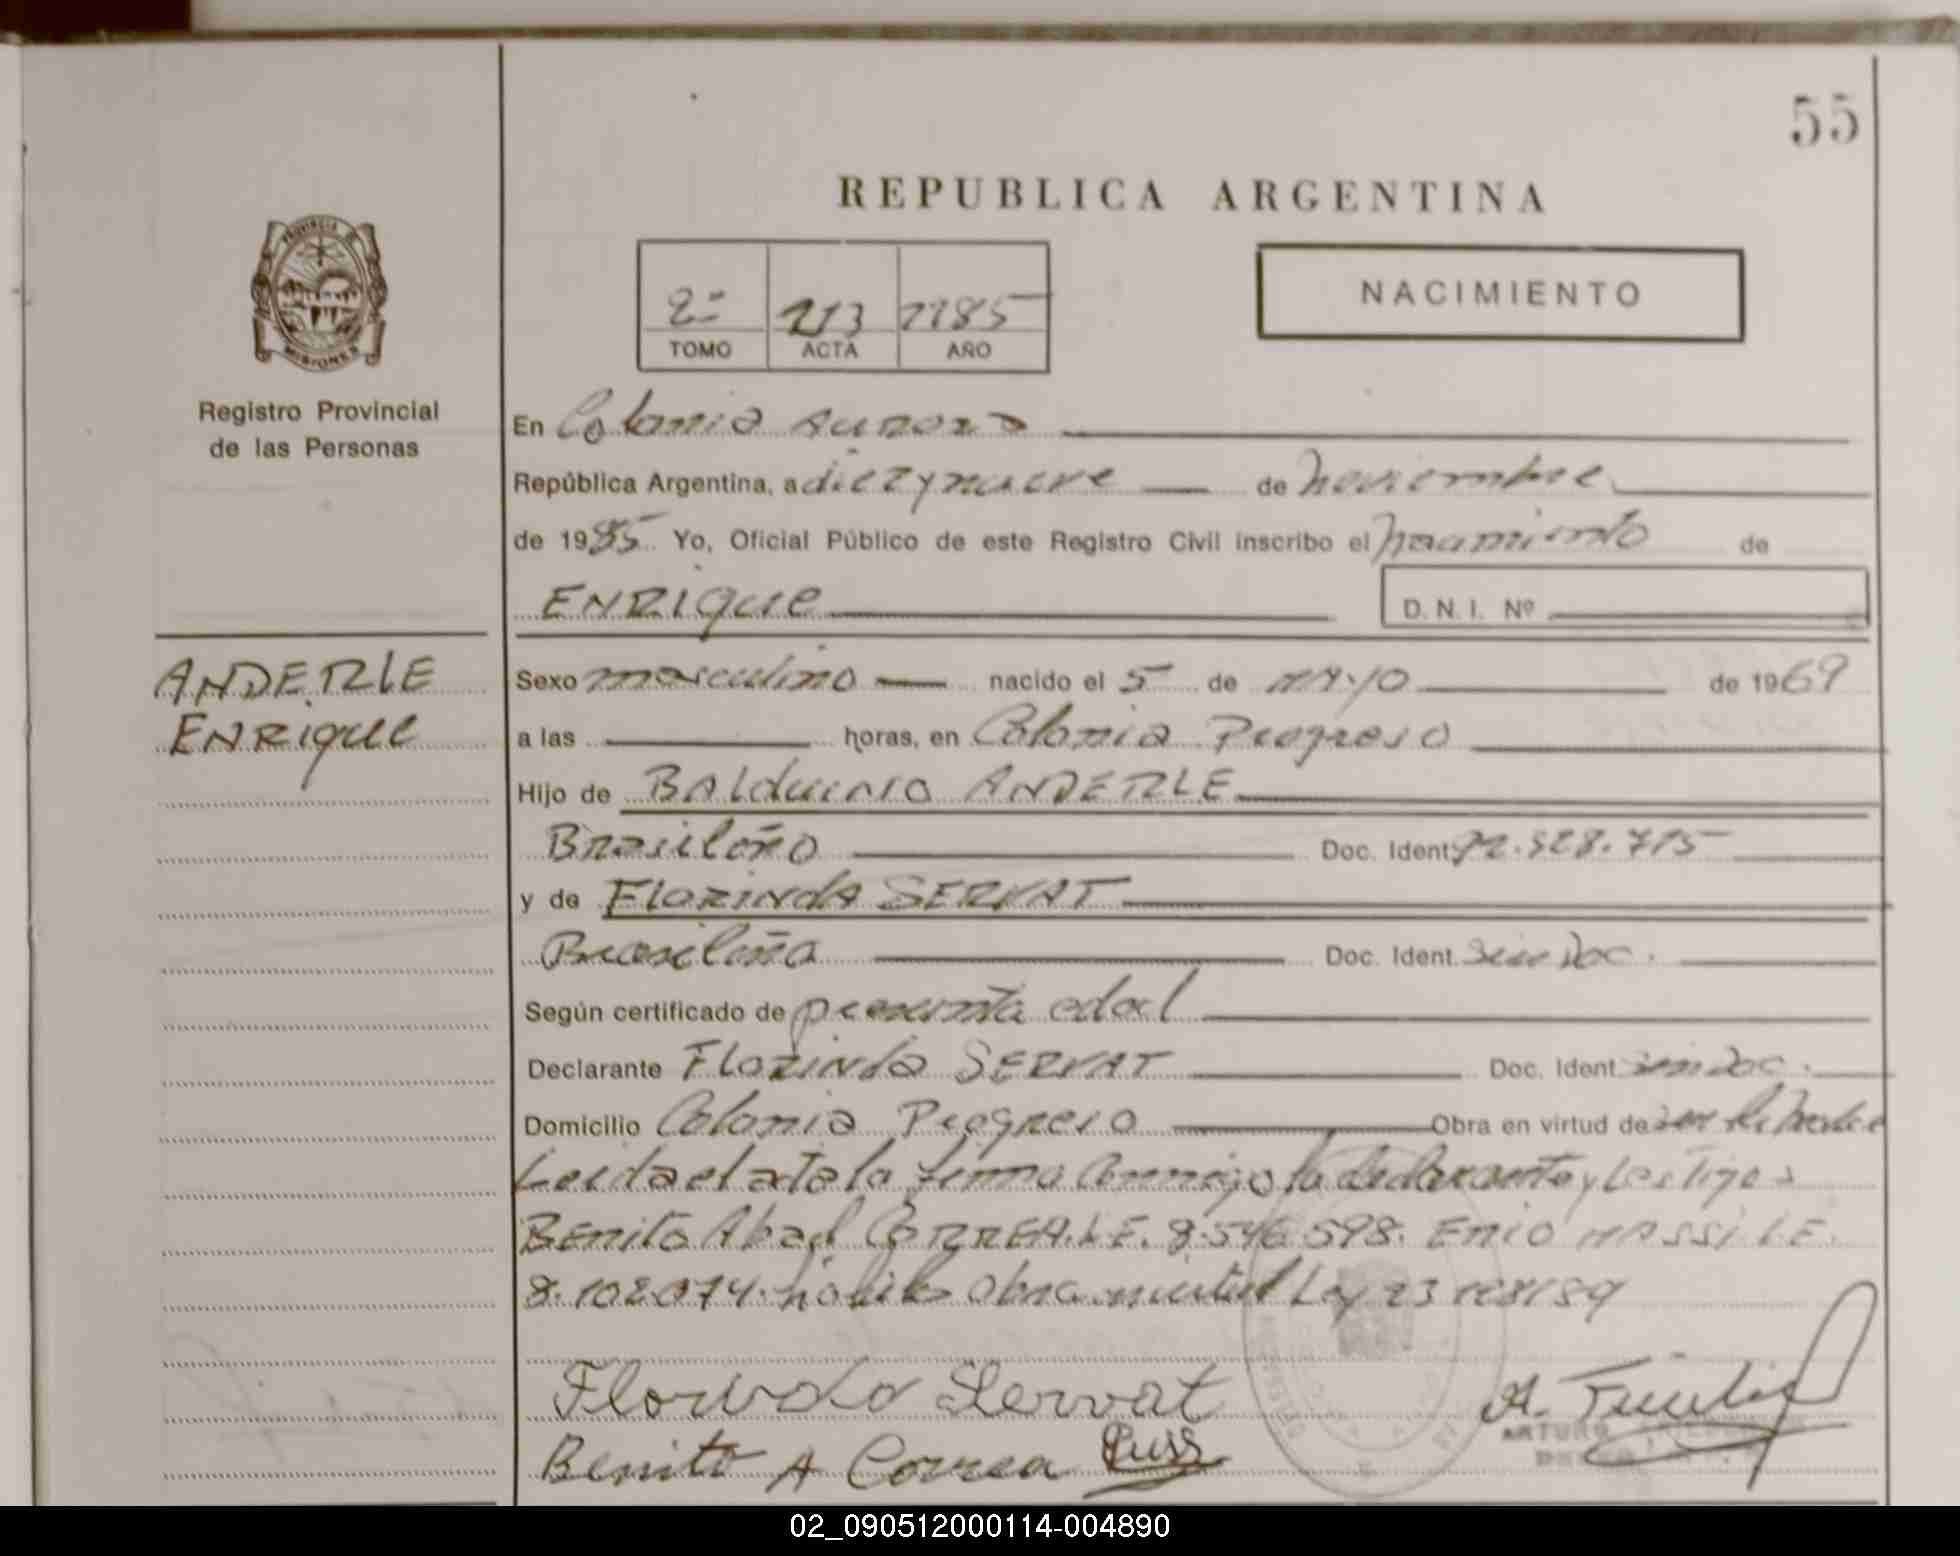 55
REPUBLICA ARGENTINA
PROVINCIA DE
MISIONES
Registro Provincial
de las Personas
2º 213 1985
TOMO ACTA AÑO
NACIMIENTO
En Colonia Aurora
República Argentina, a diez y nueve de noviembre
de 1985 Yo, Oficial Público de este Registro Civil inscribo el nacimiento de
ENRIque
D. N. I. Nº
ANDERLE
ENRIque
Sexo masculino nacido el 5 de MAYO de 1969
a las horas, en Colonia Progreso
Hijo de BALduino ANDERLE
Brasileño Doc. Ident. 92.328.715
y de FLORINdA SERVAT
Brasileña Doc. Ident. Sin Doc.
Según certificado de presunta edad
Declarante FLORINda SERVAT Doc. Ident. sin Doc.
Domicilio Colonia Progreso Obra en virtud de
Leida el acta la firma conmigo la declarante y testigos
BENito Abad CORREA. L.E. 8.546.598. ENIO MASSI L.E.
8.102.074. habiles Obra virtud Ley 23
Florinda Servat
Benito A Correa
A.
ARTURO